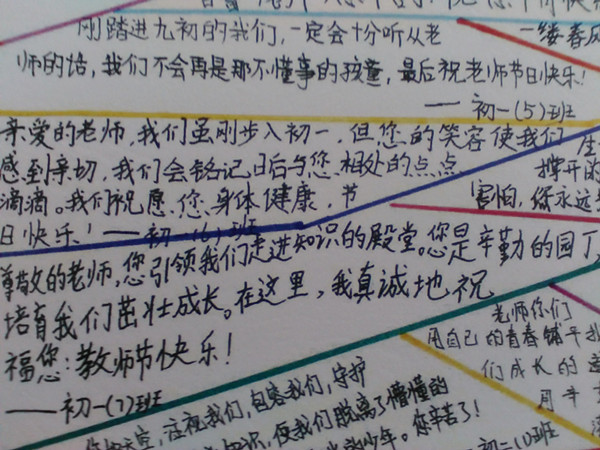 刚踏进九初的我们,一定会十分听从老
师的话,我们不会再是那不懂事的孩童,最后祝老师节日快乐!
——初一(5)班
一缕春风
亲爱的老师,我们虽刚步入初一,但您的笑容使我们
感到亲切,我们会铭记日后与您相处的点点
滴滴。我们祝愿您身体健康,节
日快乐!——初一(6)班
撑开的
害怕,您永远
尊敬的老师,您引领我们走进知识的殿堂。您是辛勤的园丁,
培育我们茁壮成长。在这里,我真诚地祝
福您:教师节快乐!
——初一(7)班
老师你们
用自己的青春铺平
们成长的道
注视我们,包容我们,守护
知识,使我们脱离了懵懂的
少年。您辛苦了!
初二(1)班